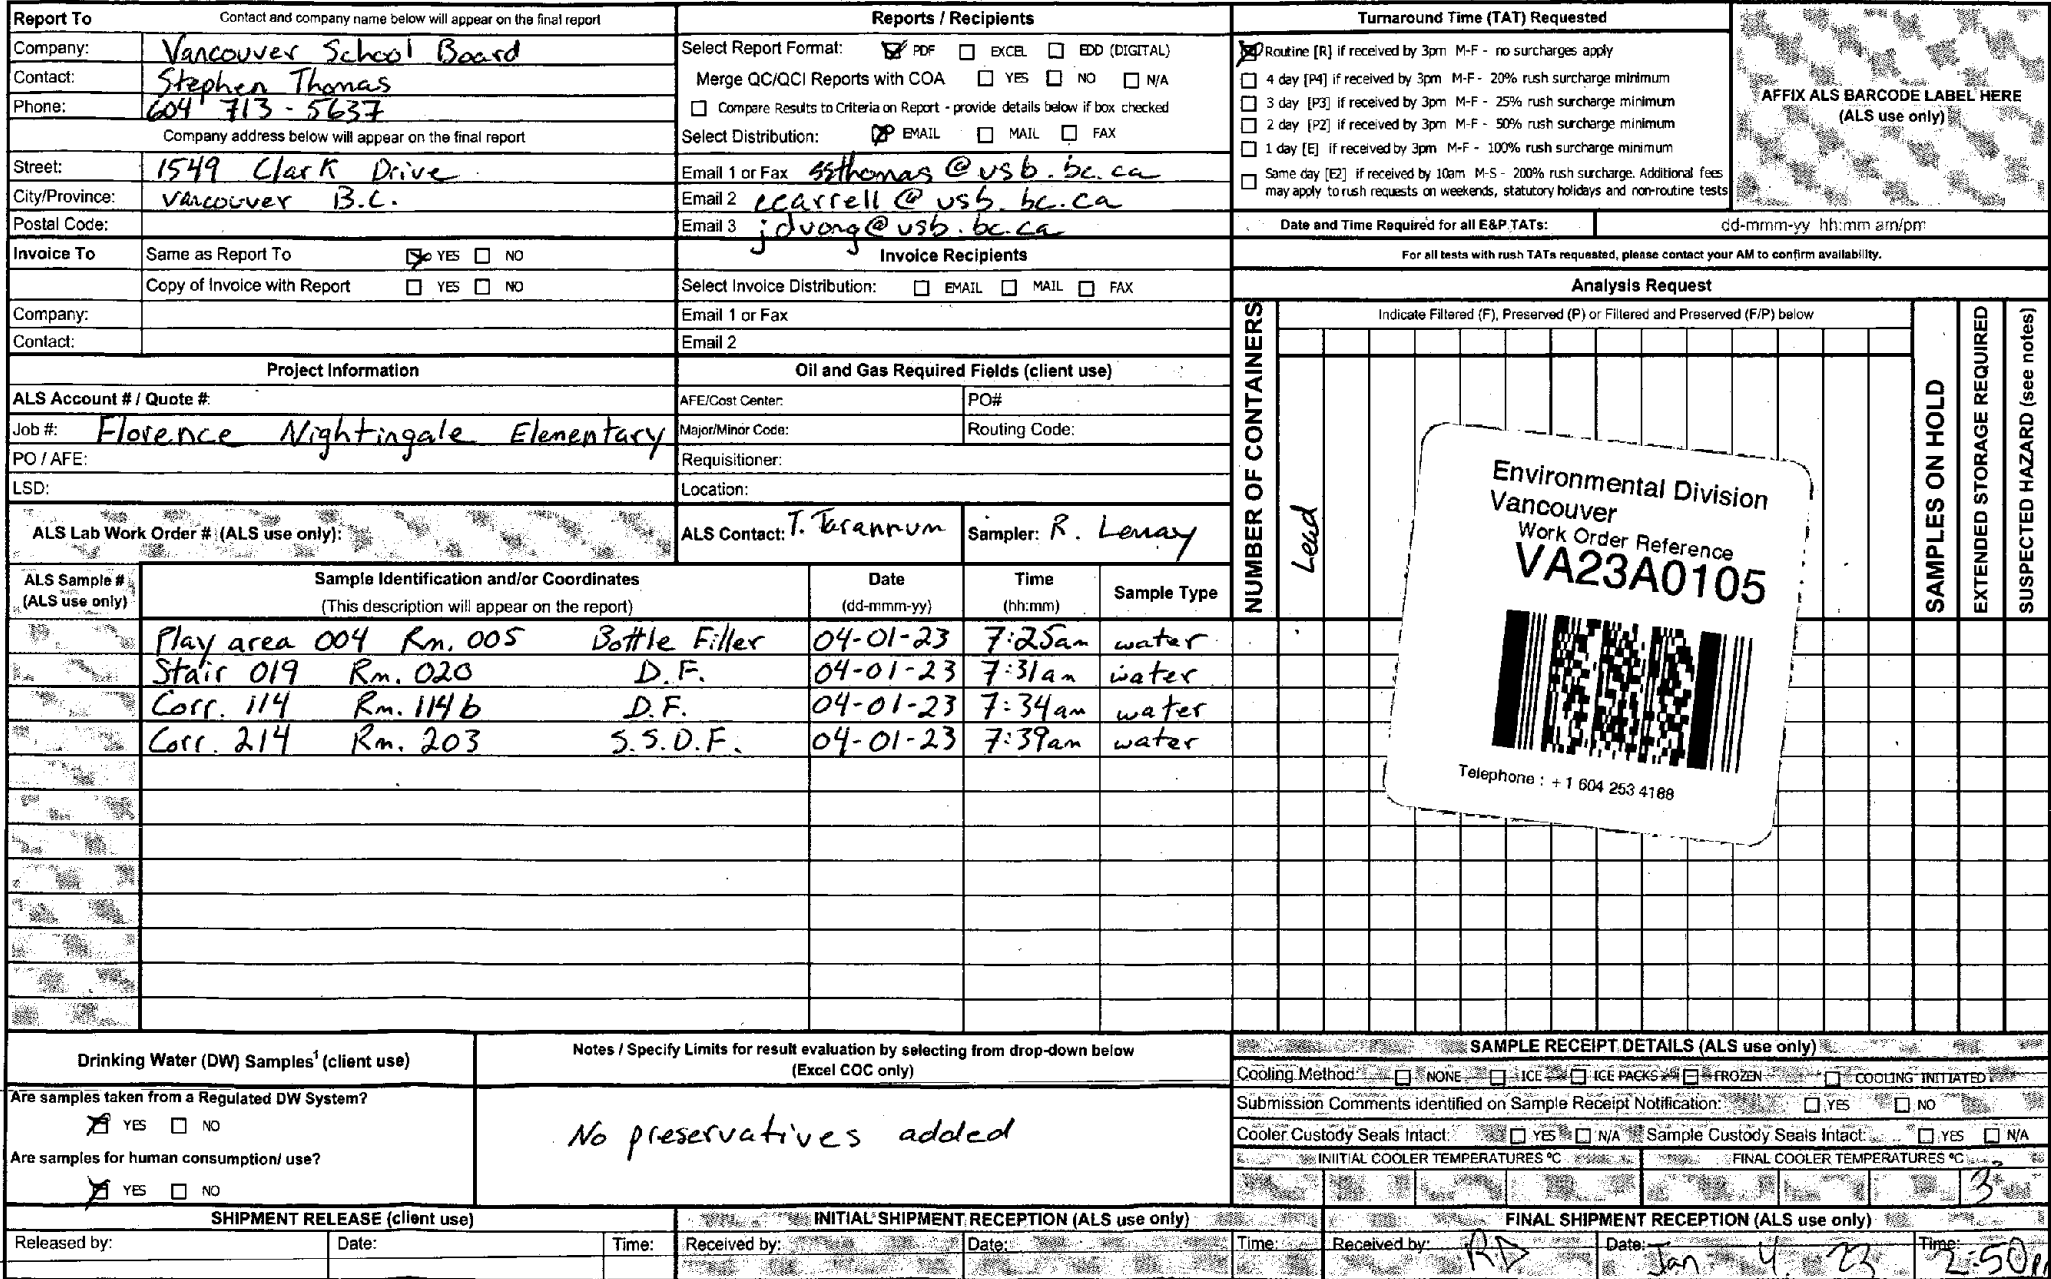 Report To Contact and company name below will appear on the final report
Company: Vancouver School Board
Contact: Stephen Thomas
Phone: 604 713-5637
Company address below will appear on the final report
Street: 1549 Clark Drive
City/Province: Vancouver B.C.
Postal Code:
Invoice To Same as Report To YES NO
Copy of Invoice with Report YES NO
Company:
Contact:
Project Information
ALS Account # / Quote #:
Job #: Florence Nightingale Elementary
PO / AFE:
LSD:
ALS Lab Work Order # (ALS use only):
Reports / Recipients
Select Report Format: PDF EXCEL EDD (DIGITAL)
Merge QC/QCI Reports with COA YES NO N/A
Compare Results to Criteria on Report - provide details below if box checked
Select Distribution: EMAIL MAIL FAX
Email 1 or Fax ssthomas@vsb.bc.ca
Email 2 ccarrell@vsb.bc.ca
Email 3 jdvong@vsb.bc.ca
Invoice Recipients
Select Invoice Distribution: EMAIL MAIL FAX
Email 1 or Fax
Email 2
Oil and Gas Required Fields (client use)
AFE/Cost Center: PO#
Major/Minor Code: Routing Code:
Requisitioner:
Location:
ALS Contact: T. Tarannum Sampler: R.
Turnaround Time (TAT) Requested
Routine [R] if received by 3pm M-F - no surcharges apply
4 day [P4] if received by 3pm M-F - 20% rush surcharge minimum
3 day [P3] if received by 3pm M-F - 25% rush surcharge minimum
2 day [P2] if received by 3pm M-F - 50% rush surcharge minimum
1 day [E] if received by 3pm M-F - 100% rush surcharge minimum
Same day [E2] if received by 10am M-S - 200% rush surcharge. Additional fees
may apply to rush requests on weekends, statutory holidays and non-routine tests
AFFIX ALS BARCODE LABEL HERE
(ALS use only)
Date and Time Required for all E&P TATs: dd-mmm-yy hh:mm am/pm
For all tests with rush TATs requested, please contact your AM to confirm availability.
Analysis Request
Indicate Filtered (F), Preserved (P) or Filtered and Preserved (F/P) below
NUMBER OF CONTAINERS
Lead
SAMPLES ON HOLD
EXTENDED STORAGE REQUIRED
SUSPECTED HAZARD (see notes)
Environmental Division
Vancouver
Work Order Reference
VA23A0105
Telephone : + 1 604 253 4188
ALS Sample # (ALS use only) Sample Identification and/or Coordinates (This description will appear on the report) Date (dd-mmm-yy) Time (hh:mm) Sample Type
Play area 004 Rm. 005 Bottle Filler 04-01-23 7:25am water
Stair 019 Rm. 020 D.F. 04-01-23 7:31am water
Corr. 114 Rm. 114b D.F. 04-01-23 7:34am water
Corr. 214 Rm. 203 S.S.D.F. 04-01-23 7:39am water
Drinking Water (DW) Samples¹ (client use)
Are samples taken from a Regulated DW System?
YES NO
Are samples for human consumption/ use?
YES NO
Notes / Specify Limits for result evaluation by selecting from drop-down below
(Excel COC only)
No preservatives added
SAMPLE RECEIPT DETAILS (ALS use only)
Cooling Method: NONE ICE ICE PACKS FROZEN COOLING INITIATED
Submission Comments identified on Sample Receipt Notification: YES NO
Cooler Custody Seals Intact: YES N/A Sample Custody Seals Intact: YES N/A
INIITIAL COOLER TEMPERATURES °C FINAL COOLER TEMPERATURES °C
3
SHIPMENT RELEASE (client use)
Released by: Date: Time:
INITIAL SHIPMENT RECEPTION (ALS use only)
Received by: Date: Time:
FINAL SHIPMENT RECEPTION (ALS use only)
Received by: RD Date: Jan 4 23 Time: 2:50p